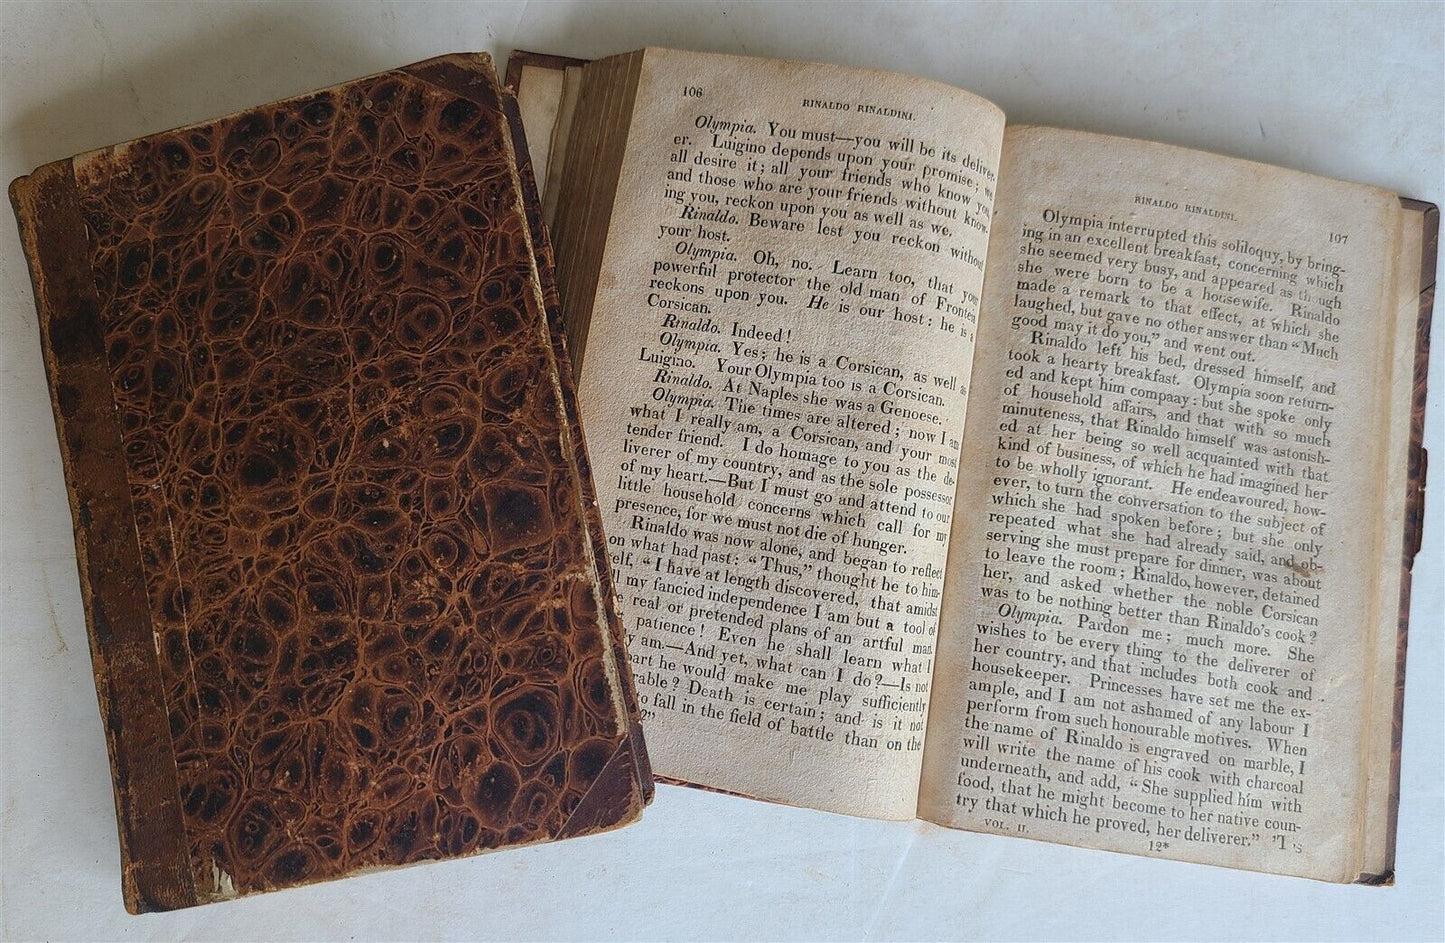 106
RINALDO RINALDINI.
Olympia. You must—you will be its deliver-
er. Luigino depends upon your promise; we
all desire it; all your friends who know you,
and those who are your friends without know-
ing you, reckon upon you as well as we.
Rinaldo. Beware lest you reckon without
your host.
Olympia. Oh, no. Learn too, that your
powerful protector the old man of Fronteia
reckons upon you. He is our host: he is a
Corsican.
Rinaldo. Indeed!
Olympia. Yes; he is a Corsican, as well as
Luigino. Your Olympia too is a Corsican.
Rinaldo. At Naples she was a Genoese.
Olympia. The times are altered; now I am
what I really am, a Corsican, and your most
tender friend. I do homage to you as the de-
liverer of my country, and as the sole possessor
of my heart.—But I must go and attend to our
little household concerns which call for my
presence, for we must not die of hunger.
Rinaldo was now alone, and began to reflect
on what had past: "Thus," thought he to him-
self, "I have at length discovered, that amidst
my fancied independence I am but a tool of
real or pretended plans of an artful man.
patience! Even he shall learn what I
am.—And yet, what can I do?—Is not
part he would make me play sufficiently
rable? Death is certain; and is it not
to fall in the field of battle than on the
?"
RINALDO RINALDINI.
107
Olympia interrupted this soliloquy, by bring-
ing in an excellent breakfast, concerning which
she seemed very busy, and appeared as though
she were born to be a housewife. Rinaldo
made a remark to that effect, at which she
laughed, but gave no other answer than "Much
good may it do you," and went out.
Rinaldo left his bed, dressed himself, and
took a hearty breakfast. Olympia soon return-
ed and kept him compaay: but she spoke only
of household affairs, and that with so much
minuteness, that Rinaldo himself was astonish-
ed at her being so well acquainted with that
kind of business, of which he had imagined her
to be wholly ignorant. He endeavoured, how-
ever, to turn the conversation to the subject of
which she had spoken before; but she only
repeated what she had already said, and ob-
serving she must prepare for dinner, was about
to leave the room; Rinaldo, however, detained
her, and asked whether the noble Corsican
was to be nothing better than Rinaldo's cook?
Olympia. Pardon me; much more. She
wishes to be every thing to the deliverer of
her country, and that includes both cook and
housekeeper. Princesses have set me the ex-
ample, and I am not ashamed of any labour I
perform from such honourable motives. When
the name of Rinaldo is engraved on marble, I
will write the name of his cook with charcoal
underneath, and add, "She supplied him with
food, that he might become to her native coun-
try that which he proved, her deliverer." 'T's
VOL. II.
12*